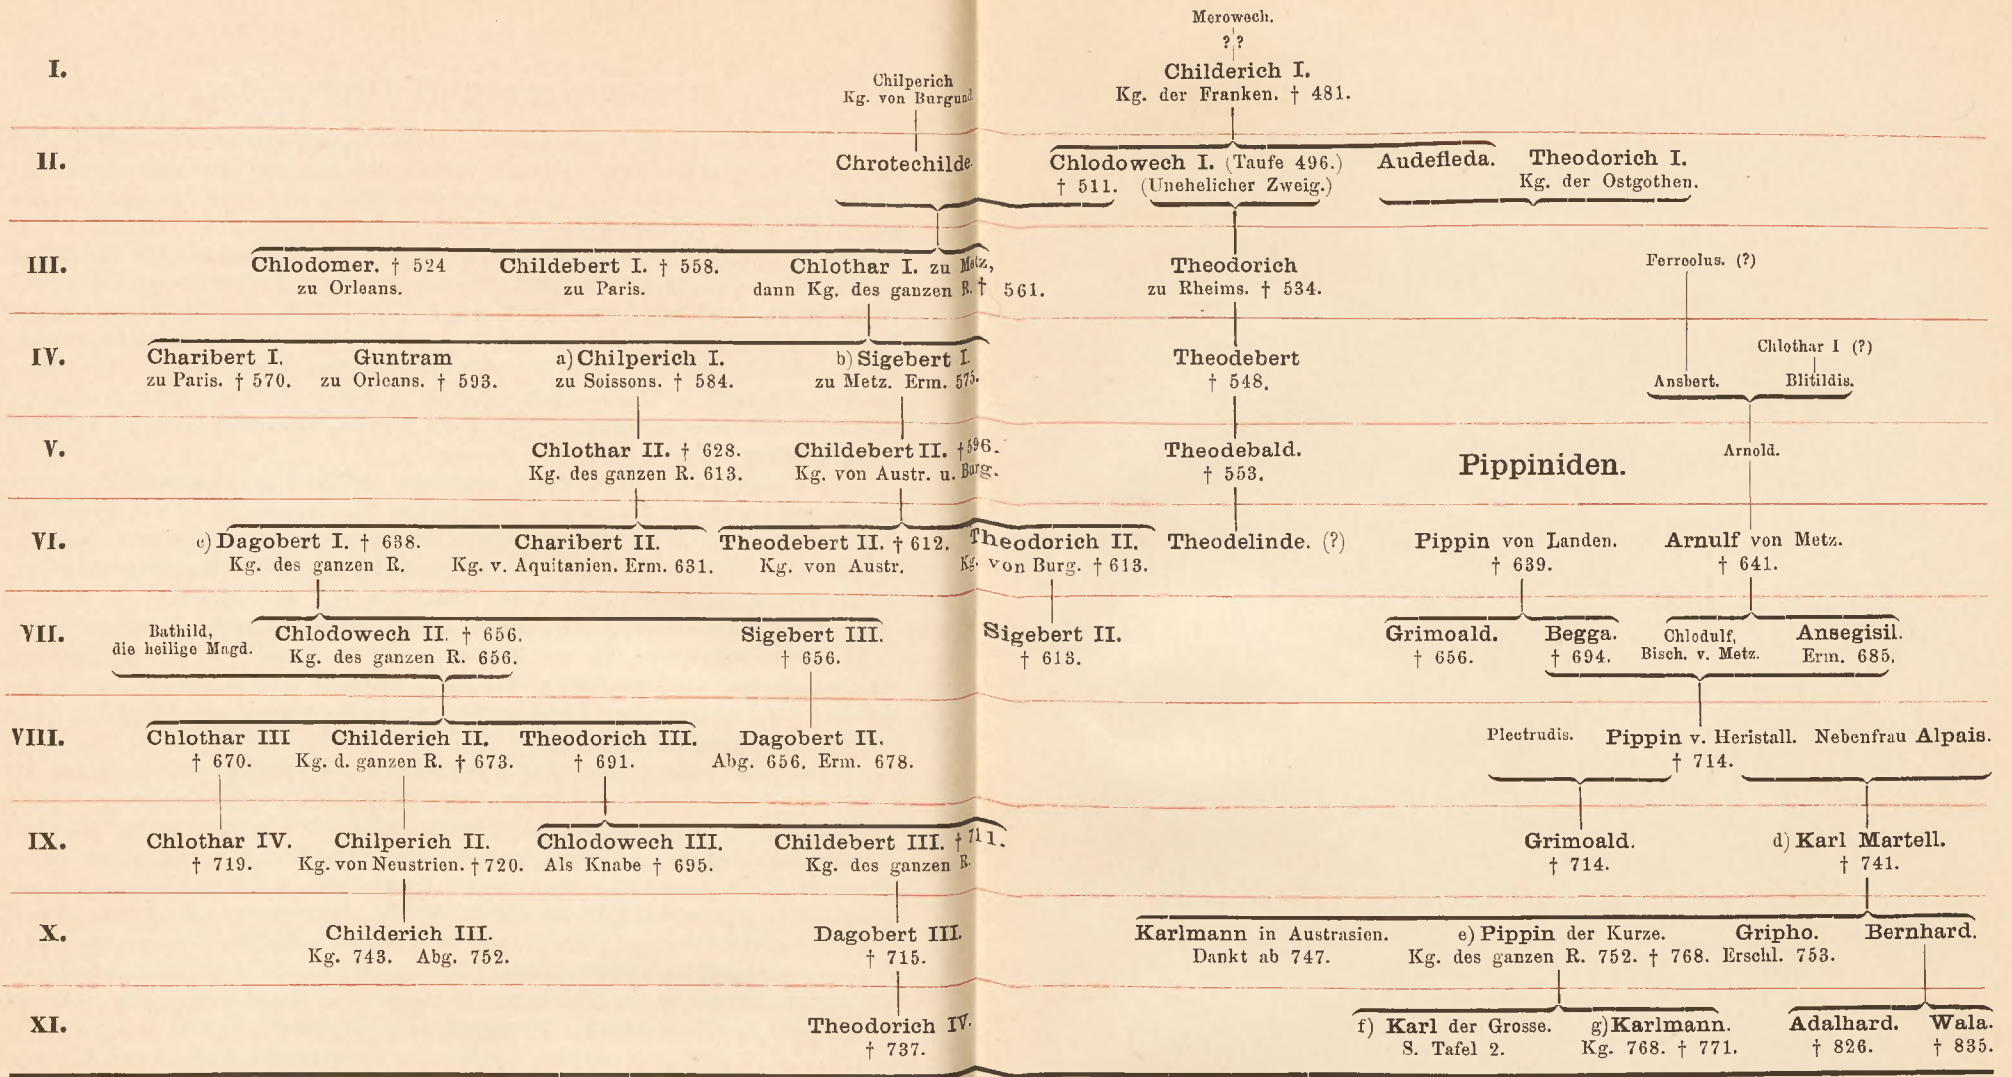 Merowech.
? ?
I.
Chilperich
Kg. von Burgund
Childerich I.
Kg. der Franken. † 481.
II.
Chrotechilde.
Chlodowech I. (Taufe 496.)
† 511. (Unehelicher Zweig.)
Audefleda.
Theodorich I.
Kg. der Ostgothen.
III.
Chlodomer. † 524
zu Orleans.
Childebert I. † 558.
zu Paris.
Chlothar I. zu Metz,
dann Kg. des ganzen R. † 561.
Theodorich
zu Rheims. † 534.
Ferreolus. (?)
IV.
Charibert I.
zu Paris. † 570.
Guntram
zu Orleans. † 593.
a) Chilperich I.
zu Soissons. † 584.
b) Sigebert I.
zu Metz. Erm. 575.
Theodebert
† 548.
Chlothar I (?)
Ansbert.
Blitildis.
V.
Chlothar II. † 628.
Kg. des ganzen R. 613.
Childebert II. † 596.
Kg. von Austr. u. Burg.
Theodebald.
† 553.
Pippiniden.
Arnold.
VI.
c) Dagobert I. † 638.
Kg. des ganzen R.
Charibert II.
Kg. v. Aquitanien. Erm. 631.
Theodebert II. † 612.
Kg. von Austr.
Theodorich II.
Kg. von Burg. † 613.
Theodelinde. (?)
Pippin von Landen.
† 639.
Arnulf von Metz.
† 641.
VII.
Bathild,
die heilige Magd.
Chlodowech II. † 656.
Kg. des ganzen R. 656.
Sigebert III.
† 656.
Sigebert II.
† 613.
Grimoald.
† 656.
Begga.
† 694.
Chlodulf,
Bisch. v. Metz.
Ansegisil.
Erm. 685.
VIII.
Chlothar III
† 670.
Childerich II.
Kg. d. ganzen R. † 673.
Theodorich III.
† 691.
Dagobert II.
Abg. 656. Erm. 678.
Plectrudis.
Pippin v. Heristall.
† 714.
Nebenfrau Alpais.
IX.
Chlothar IV.
† 719.
Chilperich II.
Kg. von Neustrien. † 720.
Chlodowech III.
Als Knabe † 695.
Childebert III. † 711.
Kg. des ganzen R.
Grimoald.
† 714.
d) Karl Martell.
† 741.
X.
Childerich III.
Kg. 743. Abg. 752.
Dagobert III.
† 715.
Karlmann in Austrasien.
Dankt ab 747.
e) Pippin der Kurze.
Kg. des ganzen R. 752. † 768.
Gripho.
Erschl. 753.
Bernhard.
XI.
Theodorich IV.
† 737.
f) Karl der Grosse.
S. Tafel 2.
g) Karlmann.
Kg. 768. † 771.
Adalhard.
† 826.
Wala.
† 835.